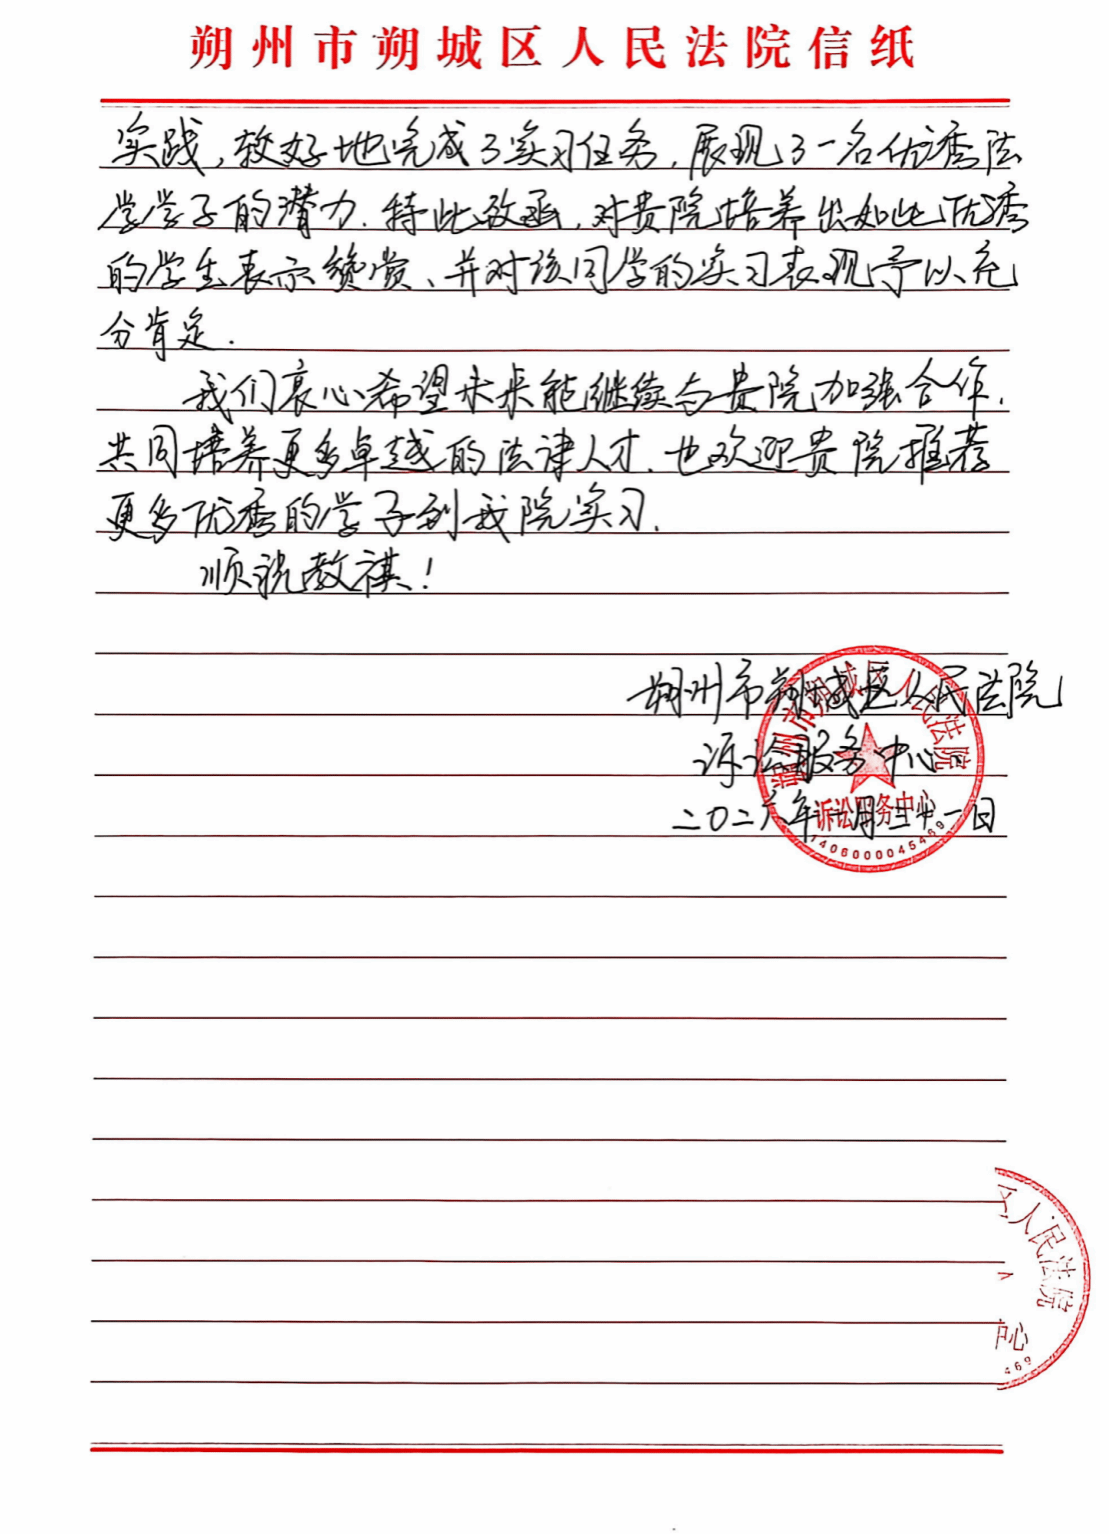 朔州市朔城区人民法院信纸
实践,较好地完成了实习任务,展现了一名优秀法
学学子的潜力.特此致函,对贵院培养出如此优秀
的学生表示赞赏、并对该同学的实习表现予以充
分肯定.
我们衷心希望未来能继续与贵院加强合作,
共同培养更多卓越的法律人才.也欢迎贵院推荐
更多优秀的学子到我院实习.
顺祝教祺!
朔州市朔城区人民法院
诉讼服务中心
二〇二六年 月 一日
朔州市朔城区人民法院
诉讼服务中心
1406000045469
区人民法院
中心
469